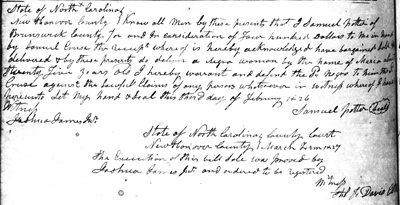 State of North Carolina
New Hanover County } Know all men by these presents that I Samuel Potter of
Brunswick County for and in consideration of Four hundred Dollars to me in hand
by Samuel Cruse the receipt whereof is hereby acknowledged have bargained sold &
delivered & by these presents do deliver a negro woman by the name of Maria about
Twenty Five years old I hereby warrant and defend the Sd negro to him the sd
Cruse against the lawful claims of any persons whatsoever in witness whereof I have
presents set my hand & seal this third day of Febuary 1826
Witness Samuel Potter (Seal)
Joshua James Jur
State of North Carolina, County Court
New Hanover County } March Term 1827
The Execution of this bill Sale was proved by
Joshua James Jur and ordered to be registered
Witness
J. Davis Clk